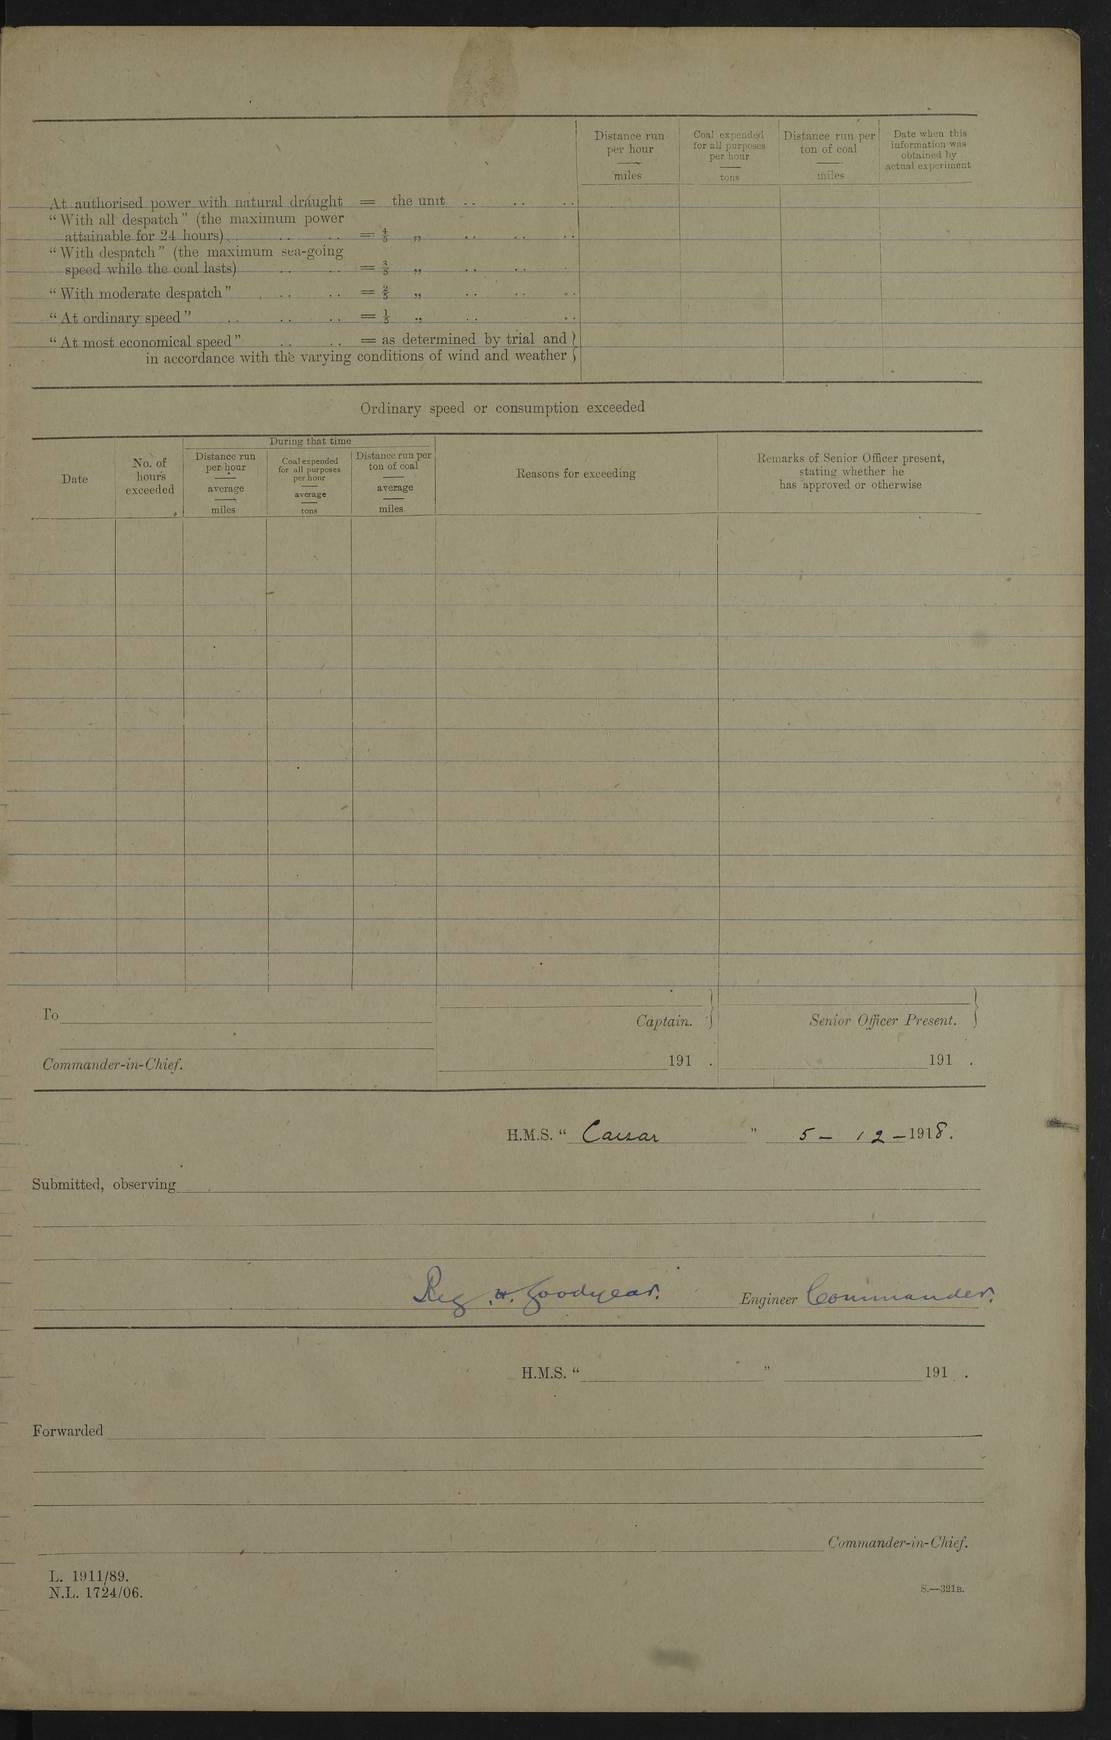 Distance run per hour — miles
Coal expended for all purposes per hour — tons
Distance run per ton of coal — miles
Date when this information was obtained by actual experiment
At authorised power with natural draught = the unit .. .. ..
"With all despatch" (the maximum power
attainable for 24 hours) .. .. .. = 4/5 „ .. .. ..
"With despatch" (the maximum sea-going
speed while the coal lasts) .. .. = 3/5 „ .. ..
"With moderate despatch" . .. .. = 2/5 „ .. .. ..
"At ordinary speed" .. .. .. = 1/5 „ .. ..
"At most economical speed" .. .. = as determined by trial and }
in accordance with the varying conditions of wind and weather }
Ordinary speed or consumption exceeded
Date
No. of hours exceeded
During that time
Distance run per hour — average — miles
Coal expended for all purposes per hour — average — tons
Distance run per ton of coal — average — miles
Reasons for exceeding
Remarks of Senior Officer present, stating whether he has approved or otherwise
To
Captain. }
Senior Officer Present. }
Commander-in-Chief.
191 .
191 .
H.M.S. " Caesar " 5 - 12 - 1918.
Submitted, observing
Reg. W. Goodyear. Engineer Commander.
H.M.S. " " 191 .
Forwarded
Commander-in-Chief.
L. 1911/89.
N.L. 1724/06.
S.—321B.